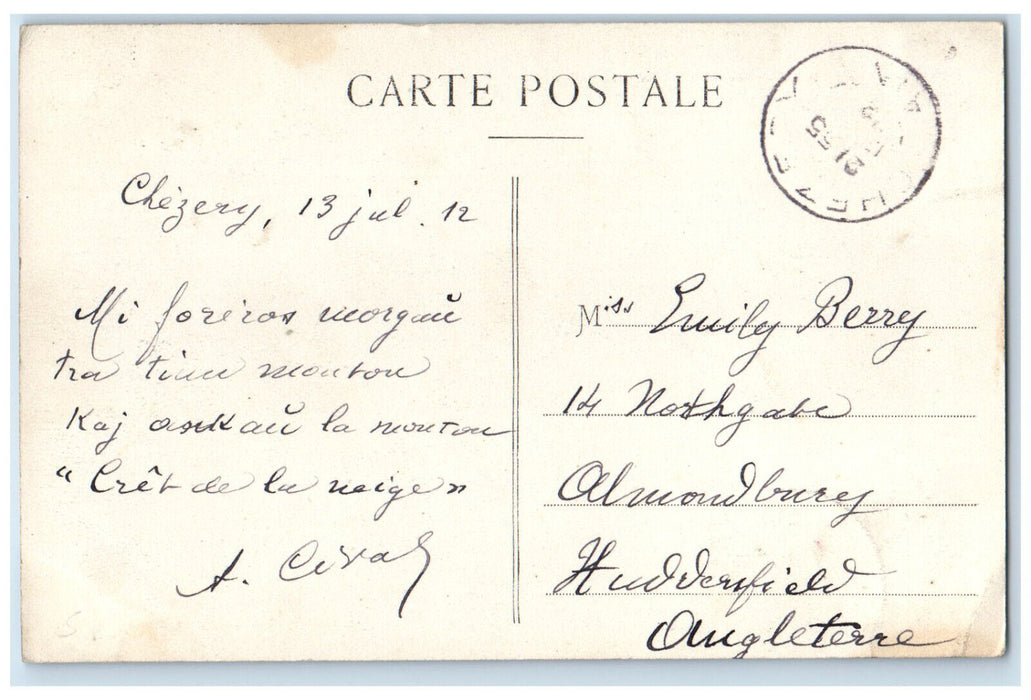 CARTE POSTALE
CHEZERY
21 55
Chézery, 13 jul. 12
Mi foriros morgaŭ
tra tiun monton
Kaj ankaŭ la monton
“Crêt de la neige”
A.
Miss Emily Berry
14 Northgate
Almondbury
Huddersfield
Angleterre